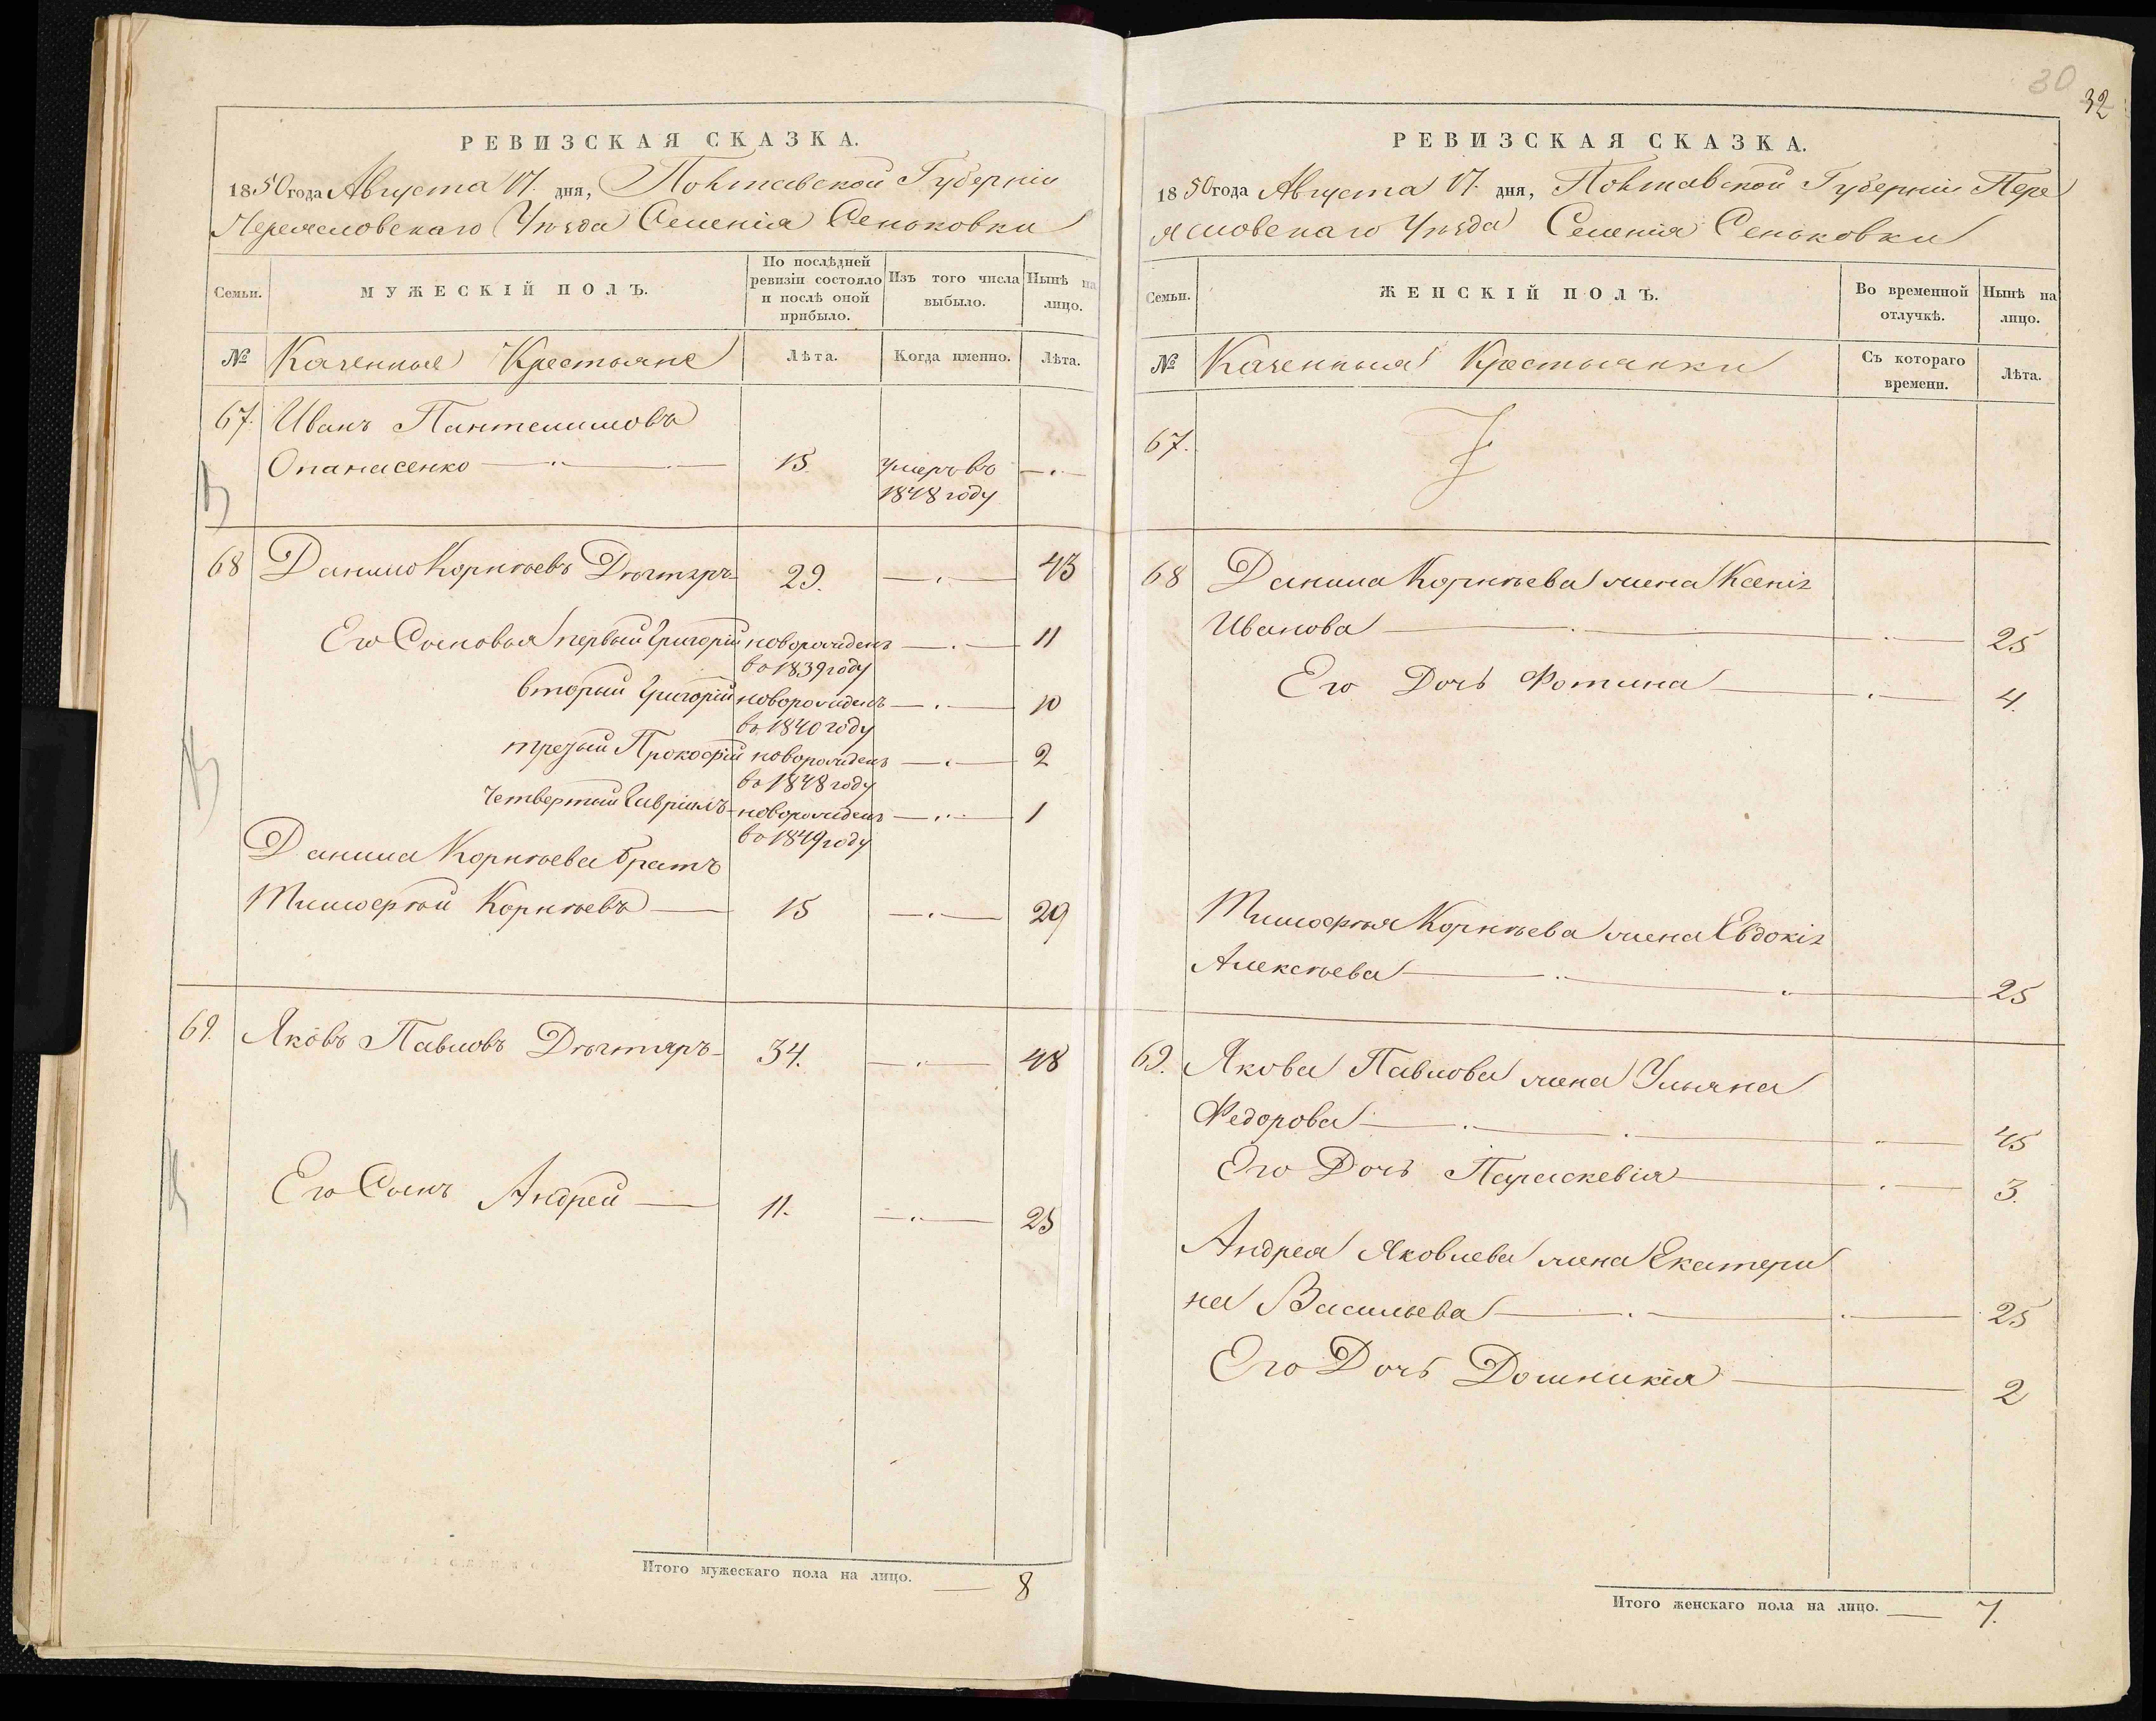 РЕВИЗСКАЯ СКАЗКА.
1850 года Августа 17. дня, Полтавской Губерніи
Переясловскаго Уѣзда Селенія Сеньковки
Семьи.
МУЖЕСКІЙ ПОЛЪ.
По послѣдней ревизіи состояло и послѣ оной прибыло.
Изъ того числа выбыло.
Нынѣ на лицо.
№ Казенные Крестьяне
Лѣта.
Когда именно.
Лѣта.
67. Иванъ Пантелимовъ
Опанасенко 15 умеръ въ
1848 году
68 Данило Корнѣевъ Дѣгтяръ 29. 43
Его Сыновья первый Григорій новорожденъ 11
въ 1839 году
вторый Григорій новорожденъ 10
въ 1840 году
третий Прокофій новорожденъ 2
въ 1848 году
четвертый Гавріилъ новорожденъ 1
въ 1849 году
Данила Корнѣева братъ
Тимофѣй Корнѣевъ 15 29
69. Яковъ Павловъ Дѣгтяръ 34. 48
Его Сынъ Андрей 11. 25
Итого мужескаго пола на лицо. 8
30
32
РЕВИЗСКАЯ СКАЗКА.
1850 года Августа 17. дня, Полтавской Губерніи Пере
ясловскаго Уѣзда Селенія Сеньковки
Семьи.
ЖЕНСКІЙ ПОЛЪ.
Во временной отлучкѣ.
Нынѣ на лицо.
№ Казенныя Крестьянки
Съ котораго времени.
Лѣта.
67.
68 Данила Корнѣева жена Ксенія
Иванова 25
Его Дочь Фотина 4.
Тимофѣя Корнѣева жена Евдокія
Алексѣева 25
69. Якова Павлова жена Ульяна
Федорова 45
Его Дочь Параскевія 3.
Андрея Яковлева жена Екатери
на Васильева 25
Его Дочь Домникія 2
Итого женскаго пола на лицо. 7.